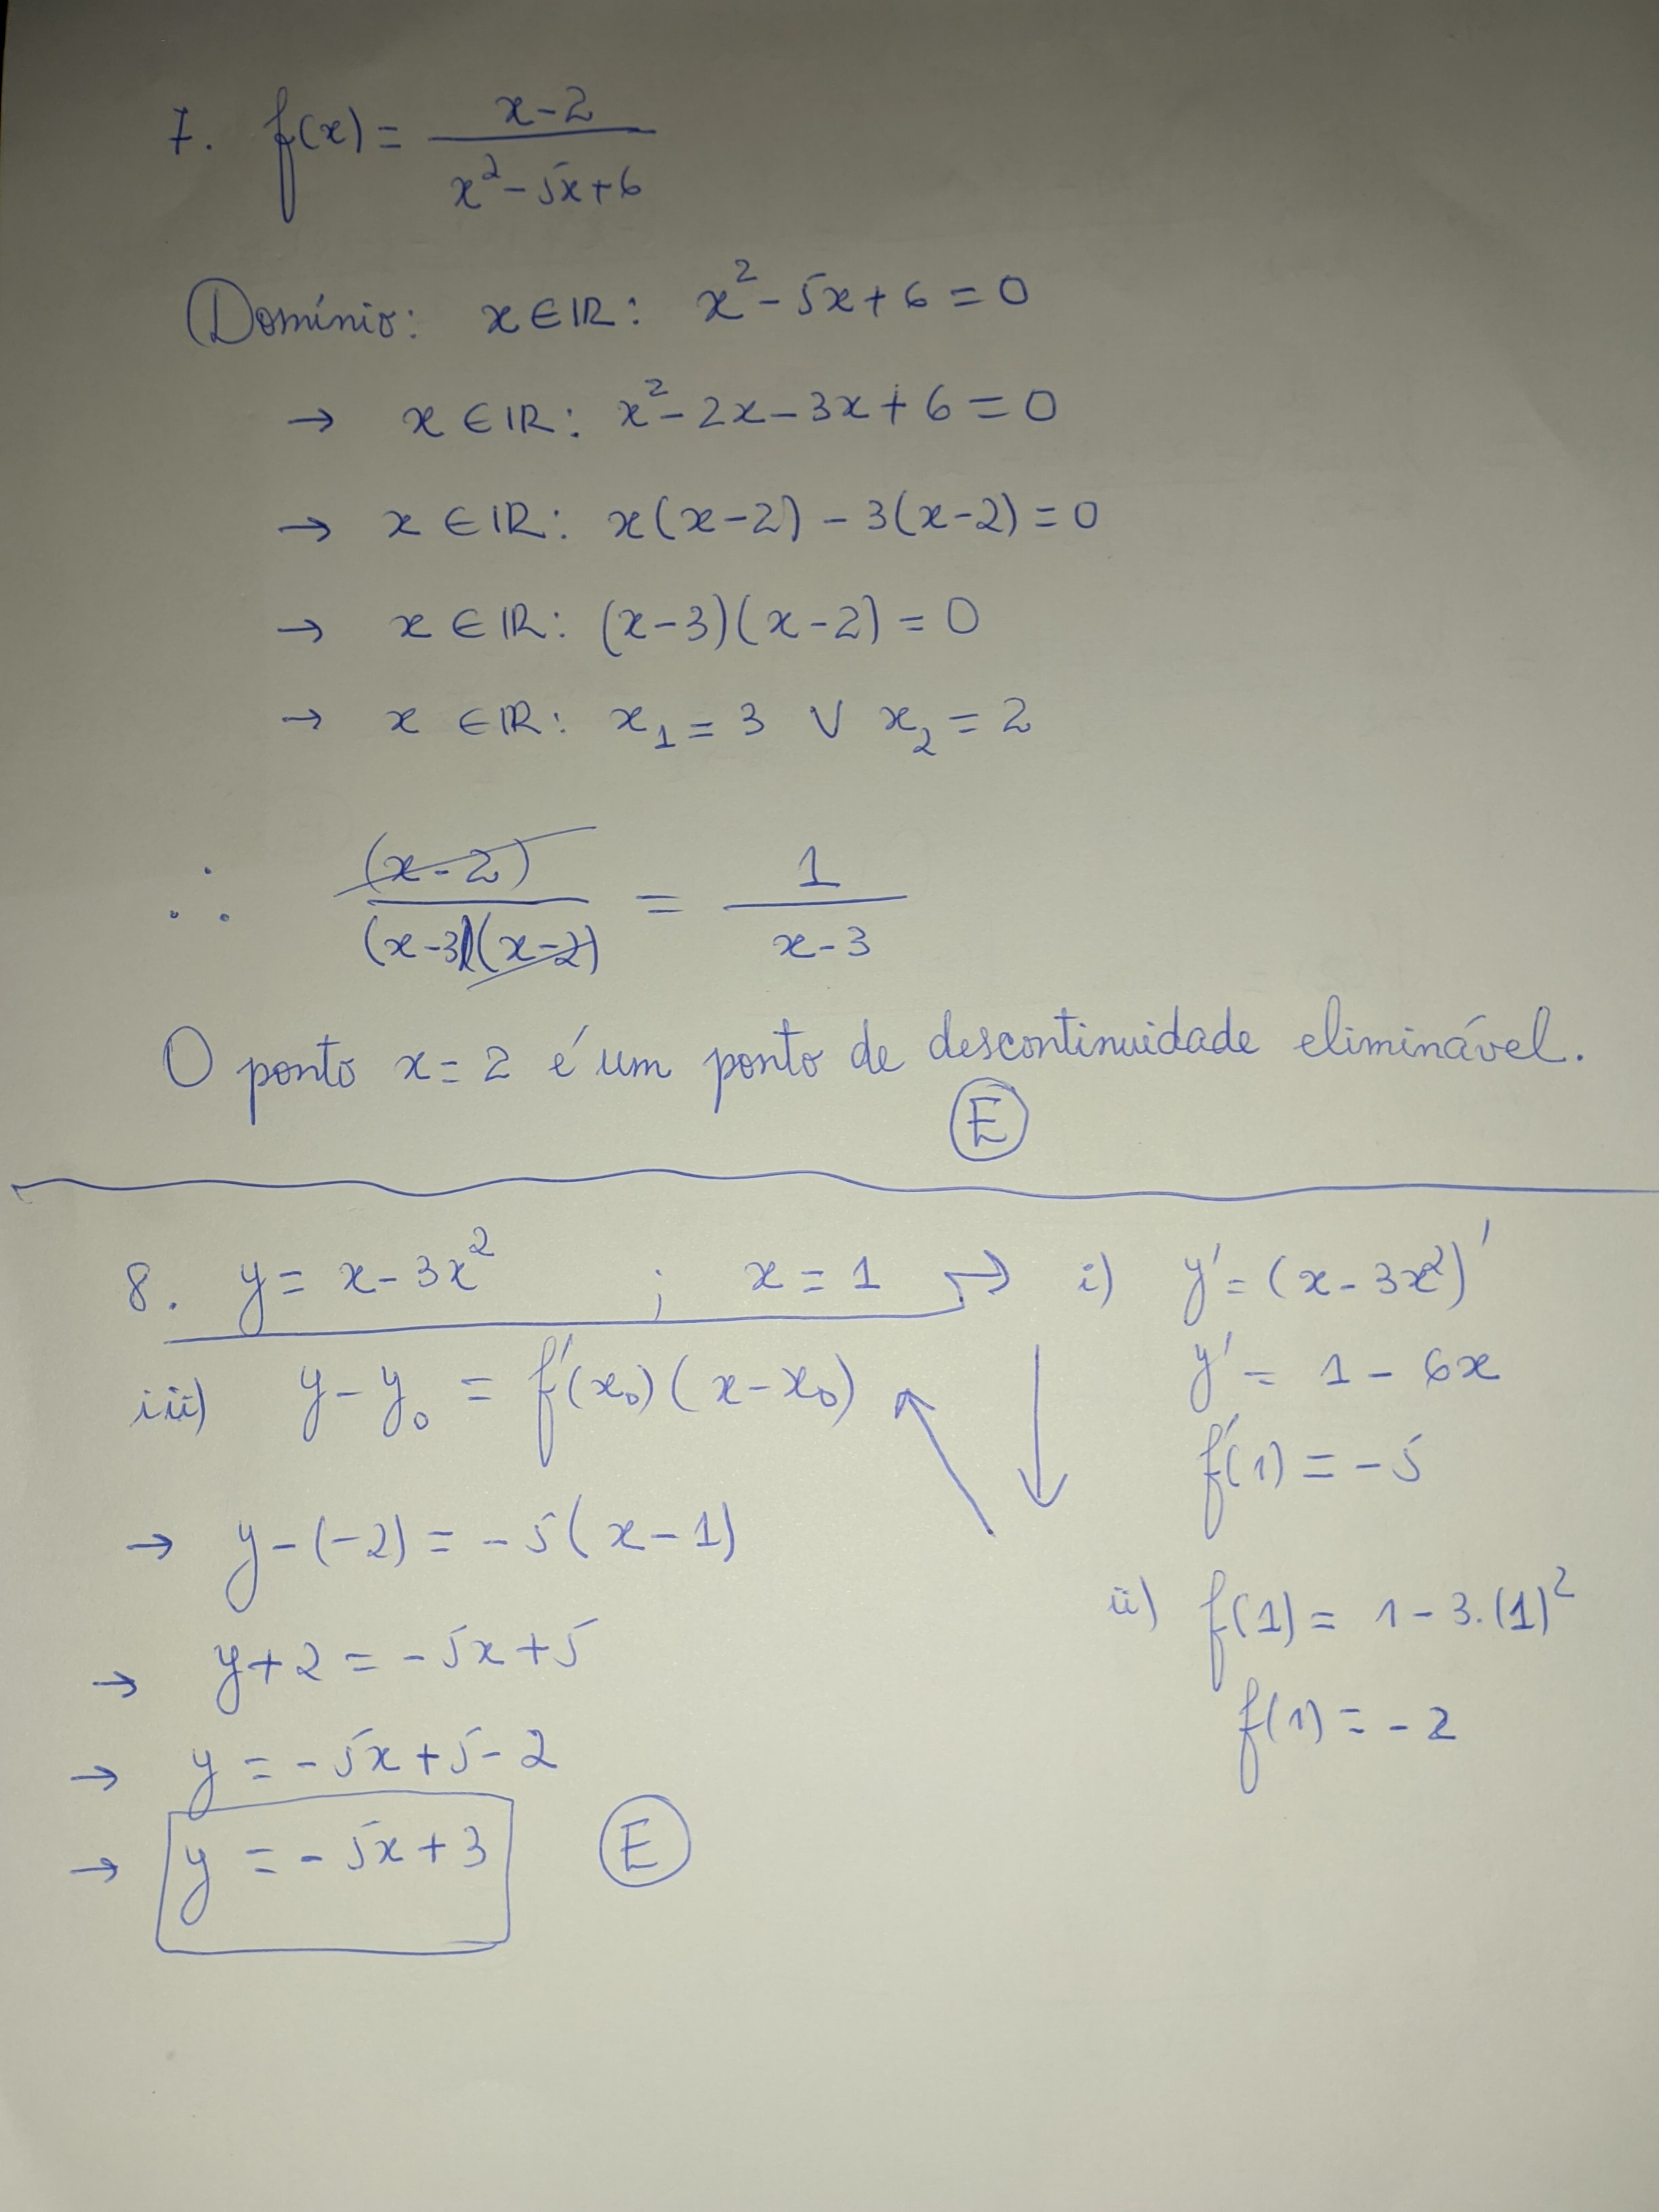 7. f(x) = (x-2)/(x²-5x+6)
Domínio: x ∈ IR: x²-5x+6=0
→ x ∈ IR: x²-2x-3x+6=0
→ x ∈ IR: x(x-2)-3(x-2)=0
→ x ∈ IR: (x-3)(x-2)=0
→ x ∈ IR: x₁=3 ∨ x₂=2
∴ (x-2)/((x-3)(x-2)) = 1/(x-3)
O ponto x=2 é um ponto de descontinuidade eliminável.
E
8. y = x-3x² ; x=1 → i) y'=(x-3x²)'
y' = 1-6x
f'(1) = -5
ii) f(1) = 1-3.(1)²
f(1) = -2
iii) y-y₀ = f'(x₀)(x-x₀)
→ y-(-2) = -5(x-1)
→ y+2 = -5x+5
→ y = -5x+5-2
→ y = -5x+3 E